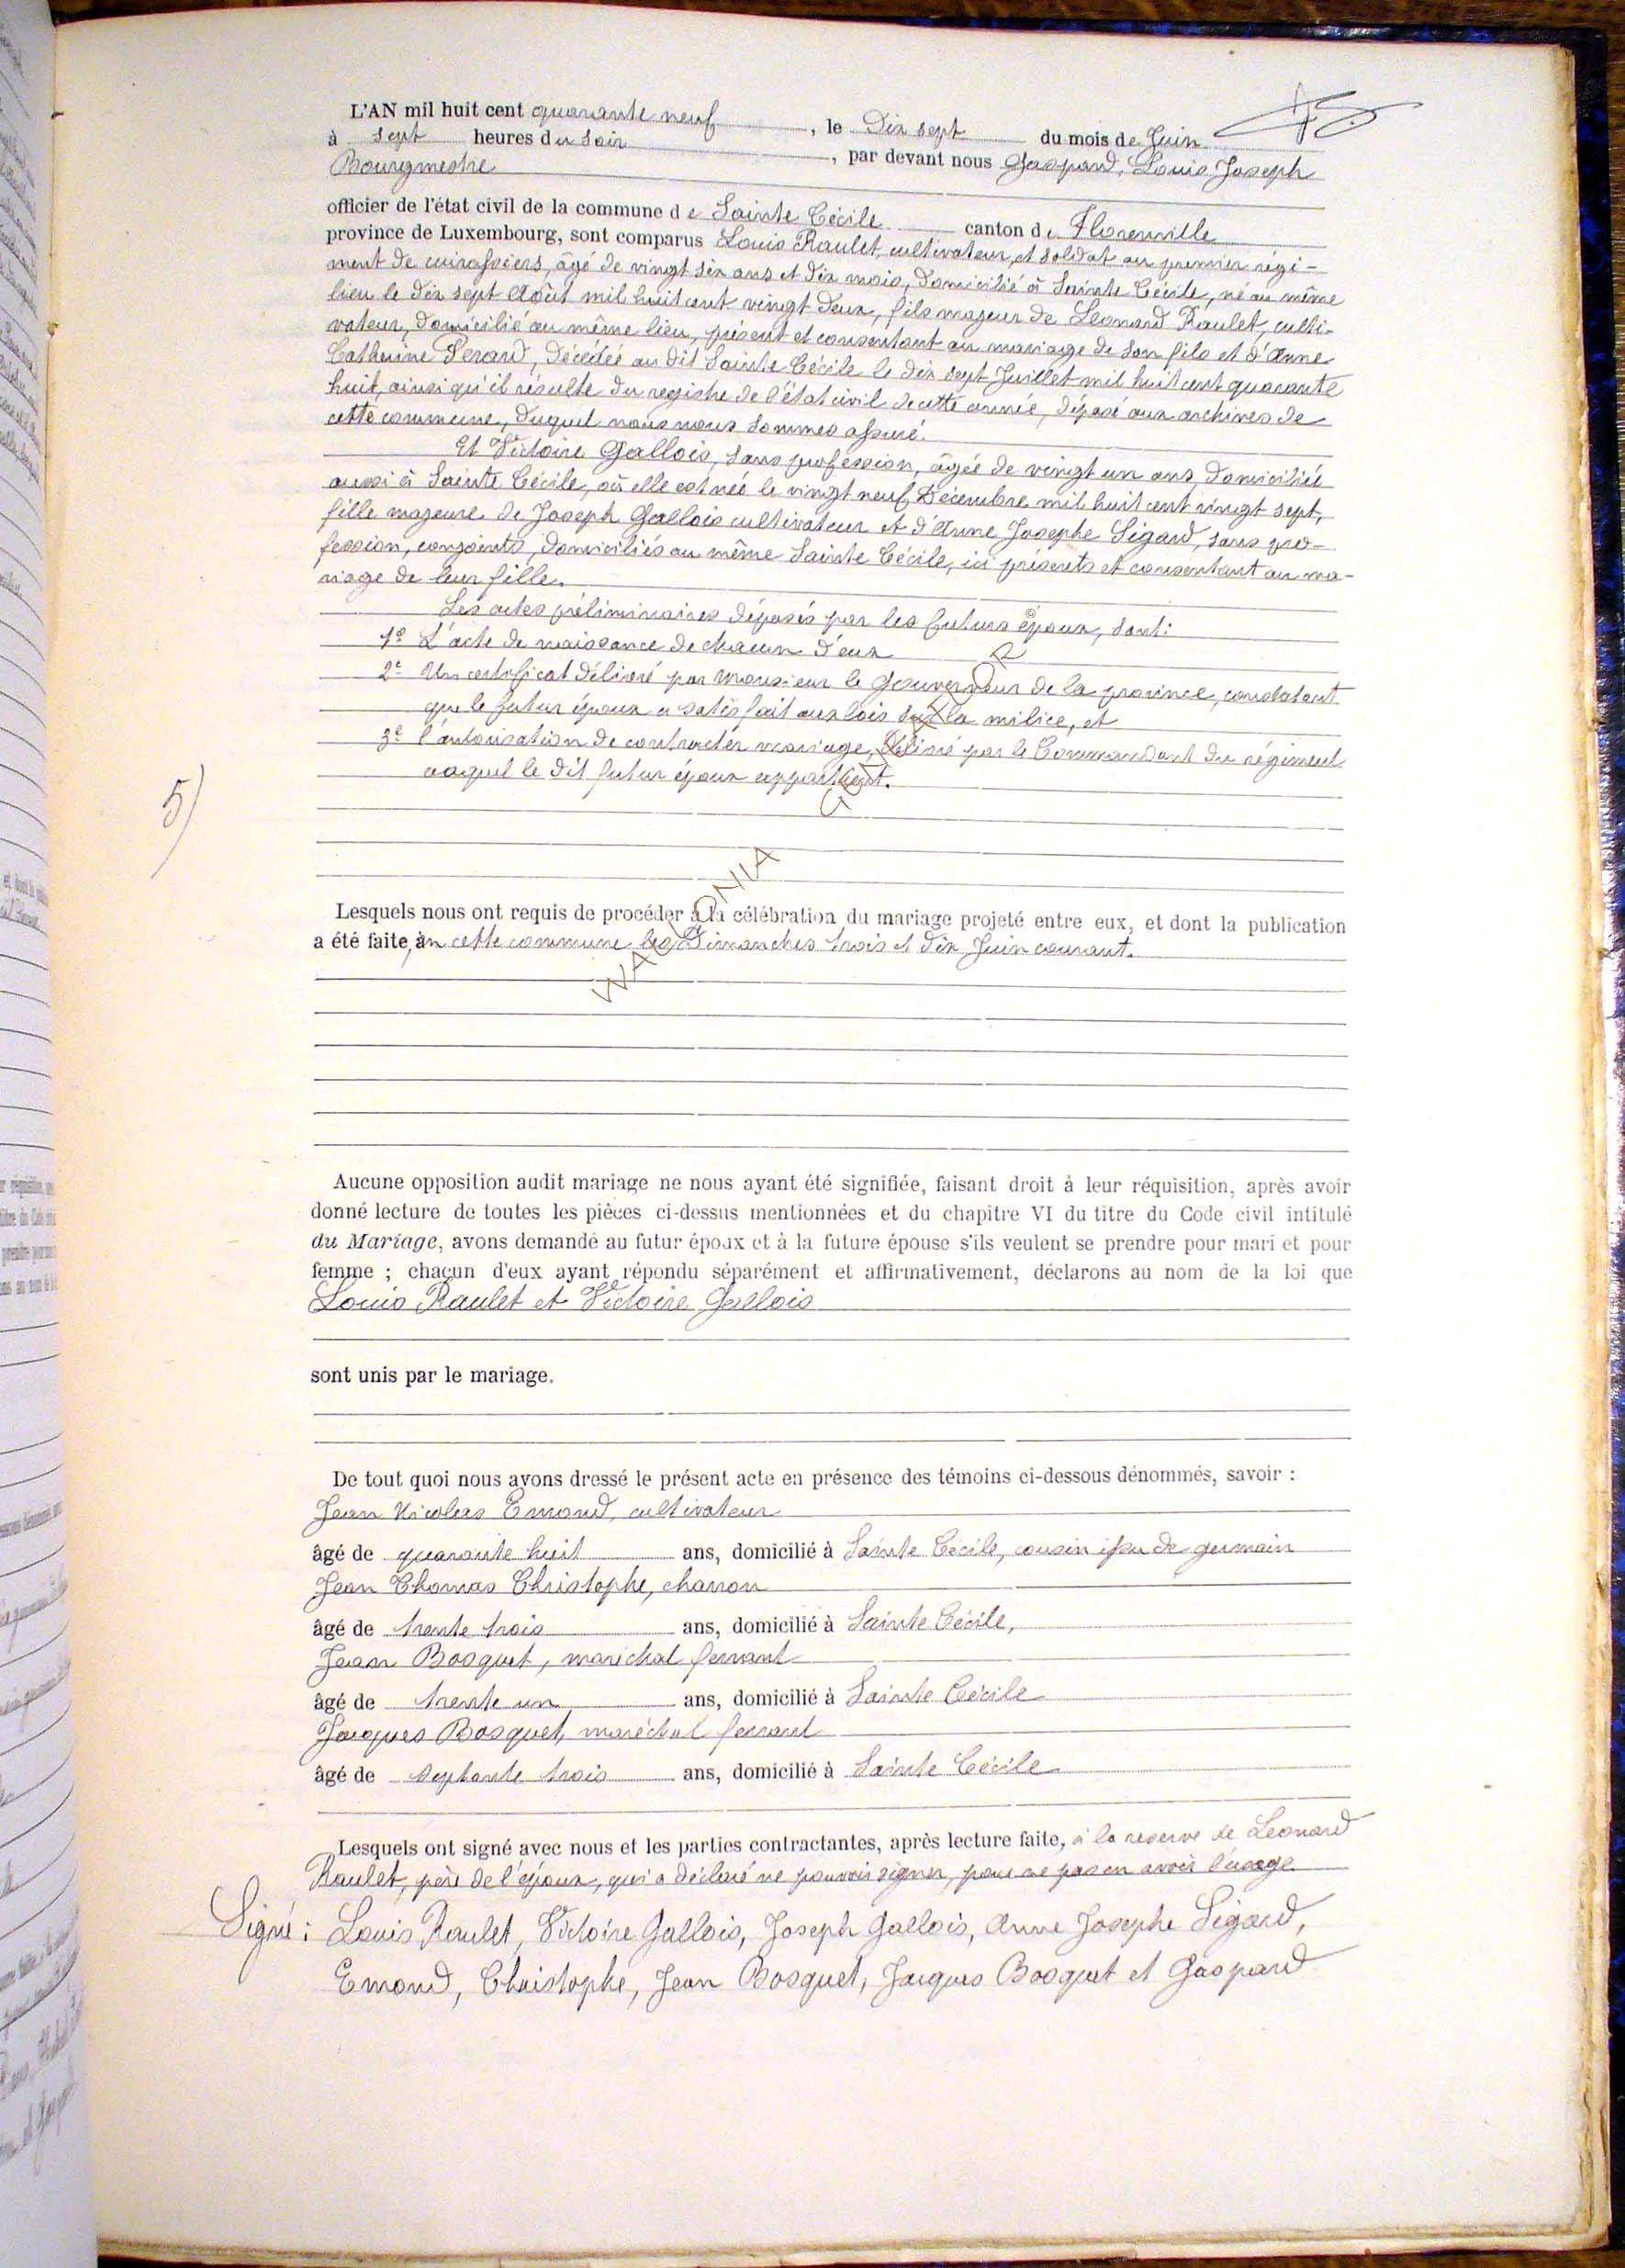 L'AN mil huit cent quarante neuf, le Dix sept du mois de Juin
à sept heures du soir, par devant nous Gaspard, Louis Joseph
Bourgmestre
officier de l'état civil de la commune de Sainte Cécile canton de Florenville
province de Luxembourg, sont comparus Louis Raulet, cultivateur, et soldat au premier régi-
ment de cuirassiers, âgé de vingt six ans et dix mois, domicilié à Sainte Cécile, né au même
lieu le dix sept Août mil huit cent vingt deux, fils majeur de Leonard Raulet, culti-
vateur, domicilié au même lieu, présent et consentant au mariage de son fils et d'Anne
Catherine Perard, décédée au dit Sainte Cécile le dix sept Juillet mil huit cent quarante
huit, ainsi qu'il résulte du registre de l'état civil de cette année, déposé aux archives de
cette commune, duquel nous nous sommes assuré.
Et Victoire Gallois, sans profession, âgée de vingt un ans, domiciliée
aussi à Sainte Cécile, où elle est née le vingt neuf Décembre mil huit cent vingt sept,
fille majeure de Joseph Gallois cultivateur et d'Anne Josephe Sigard, sans pro-
fession, conjoints, domiciliés au même Sainte Cécile, ici présents et consentant au ma-
riage de leur fille.
Les actes préliminaires déposés par les futurs époux, sont:
1º L'acte de naissance de chacun d'eux
2º Un certificat délivré par Monsieur le Gouverneur de la province, constatant
que le futur époux a satisfait aux lois sur la milice, et
3º l'autorisation de contracter mariage, délivré par le Commandant du régiment
auquel le dit futur époux appartient.
5)
Lesquels nous ont requis de procéder à la célébration du mariage projeté entre eux, et dont la publication
a été faite, en cette commune les Dimanches trois et dix Juin courant.
© WALLONIA GENEALOR
Aucune opposition audit mariage ne nous ayant été signifiée, faisant droit à leur réquisition, après avoir
donné lecture de toutes les pièces ci-dessus mentionnées et du chapitre VI du titre du Code civil intitulé
du Mariage, avons demandé au futur époux et à la future épouse s'ils veulent se prendre pour mari et pour
femme ; chacun d'eux ayant répondu séparément et affirmativement, déclarons au nom de la loi que
Louis Raulet et Victoire Gallois
sont unis par le mariage.
De tout quoi nous avons dressé le présent acte en présence des témoins ci-dessous dénommés, savoir :
Jean Nicolas Emond, cultivateur
âgé de quarante huit ans, domicilié à Sainte Cécile, cousin issu de germain
Jean Thomas Christophe, charron
âgé de trente trois ans, domicilié à Sainte Cécile,
Jean Bosquet, maréchal ferrant
âgé de trente un ans, domicilié à Sainte Cécile
Jacques Bosquet, maréchal ferrant
âgé de septante trois ans, domicilié à Sainte Cécile
Lesquels ont signé avec nous et les parties contractantes, après lecture faite, à la reserve de Leonard
Raulet, père de l'époux, qui a déclaré ne pouvoir signer, pour ne pas en avoir l'usage
Signé : Louis Raulet, Victoire Gallois, Joseph Gallois, Anne Josephe Sigard,
Emond, Christophe, Jean Bosquet, Jacques Bosquet et Gaspard